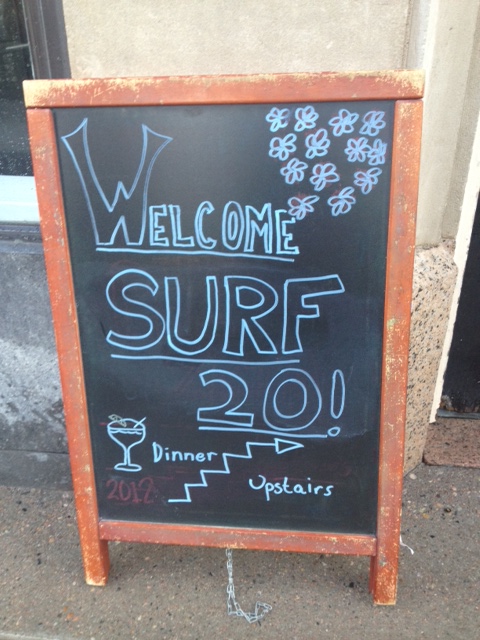 WELCOME
SURF
20!
Dinner
2012
Upstairs